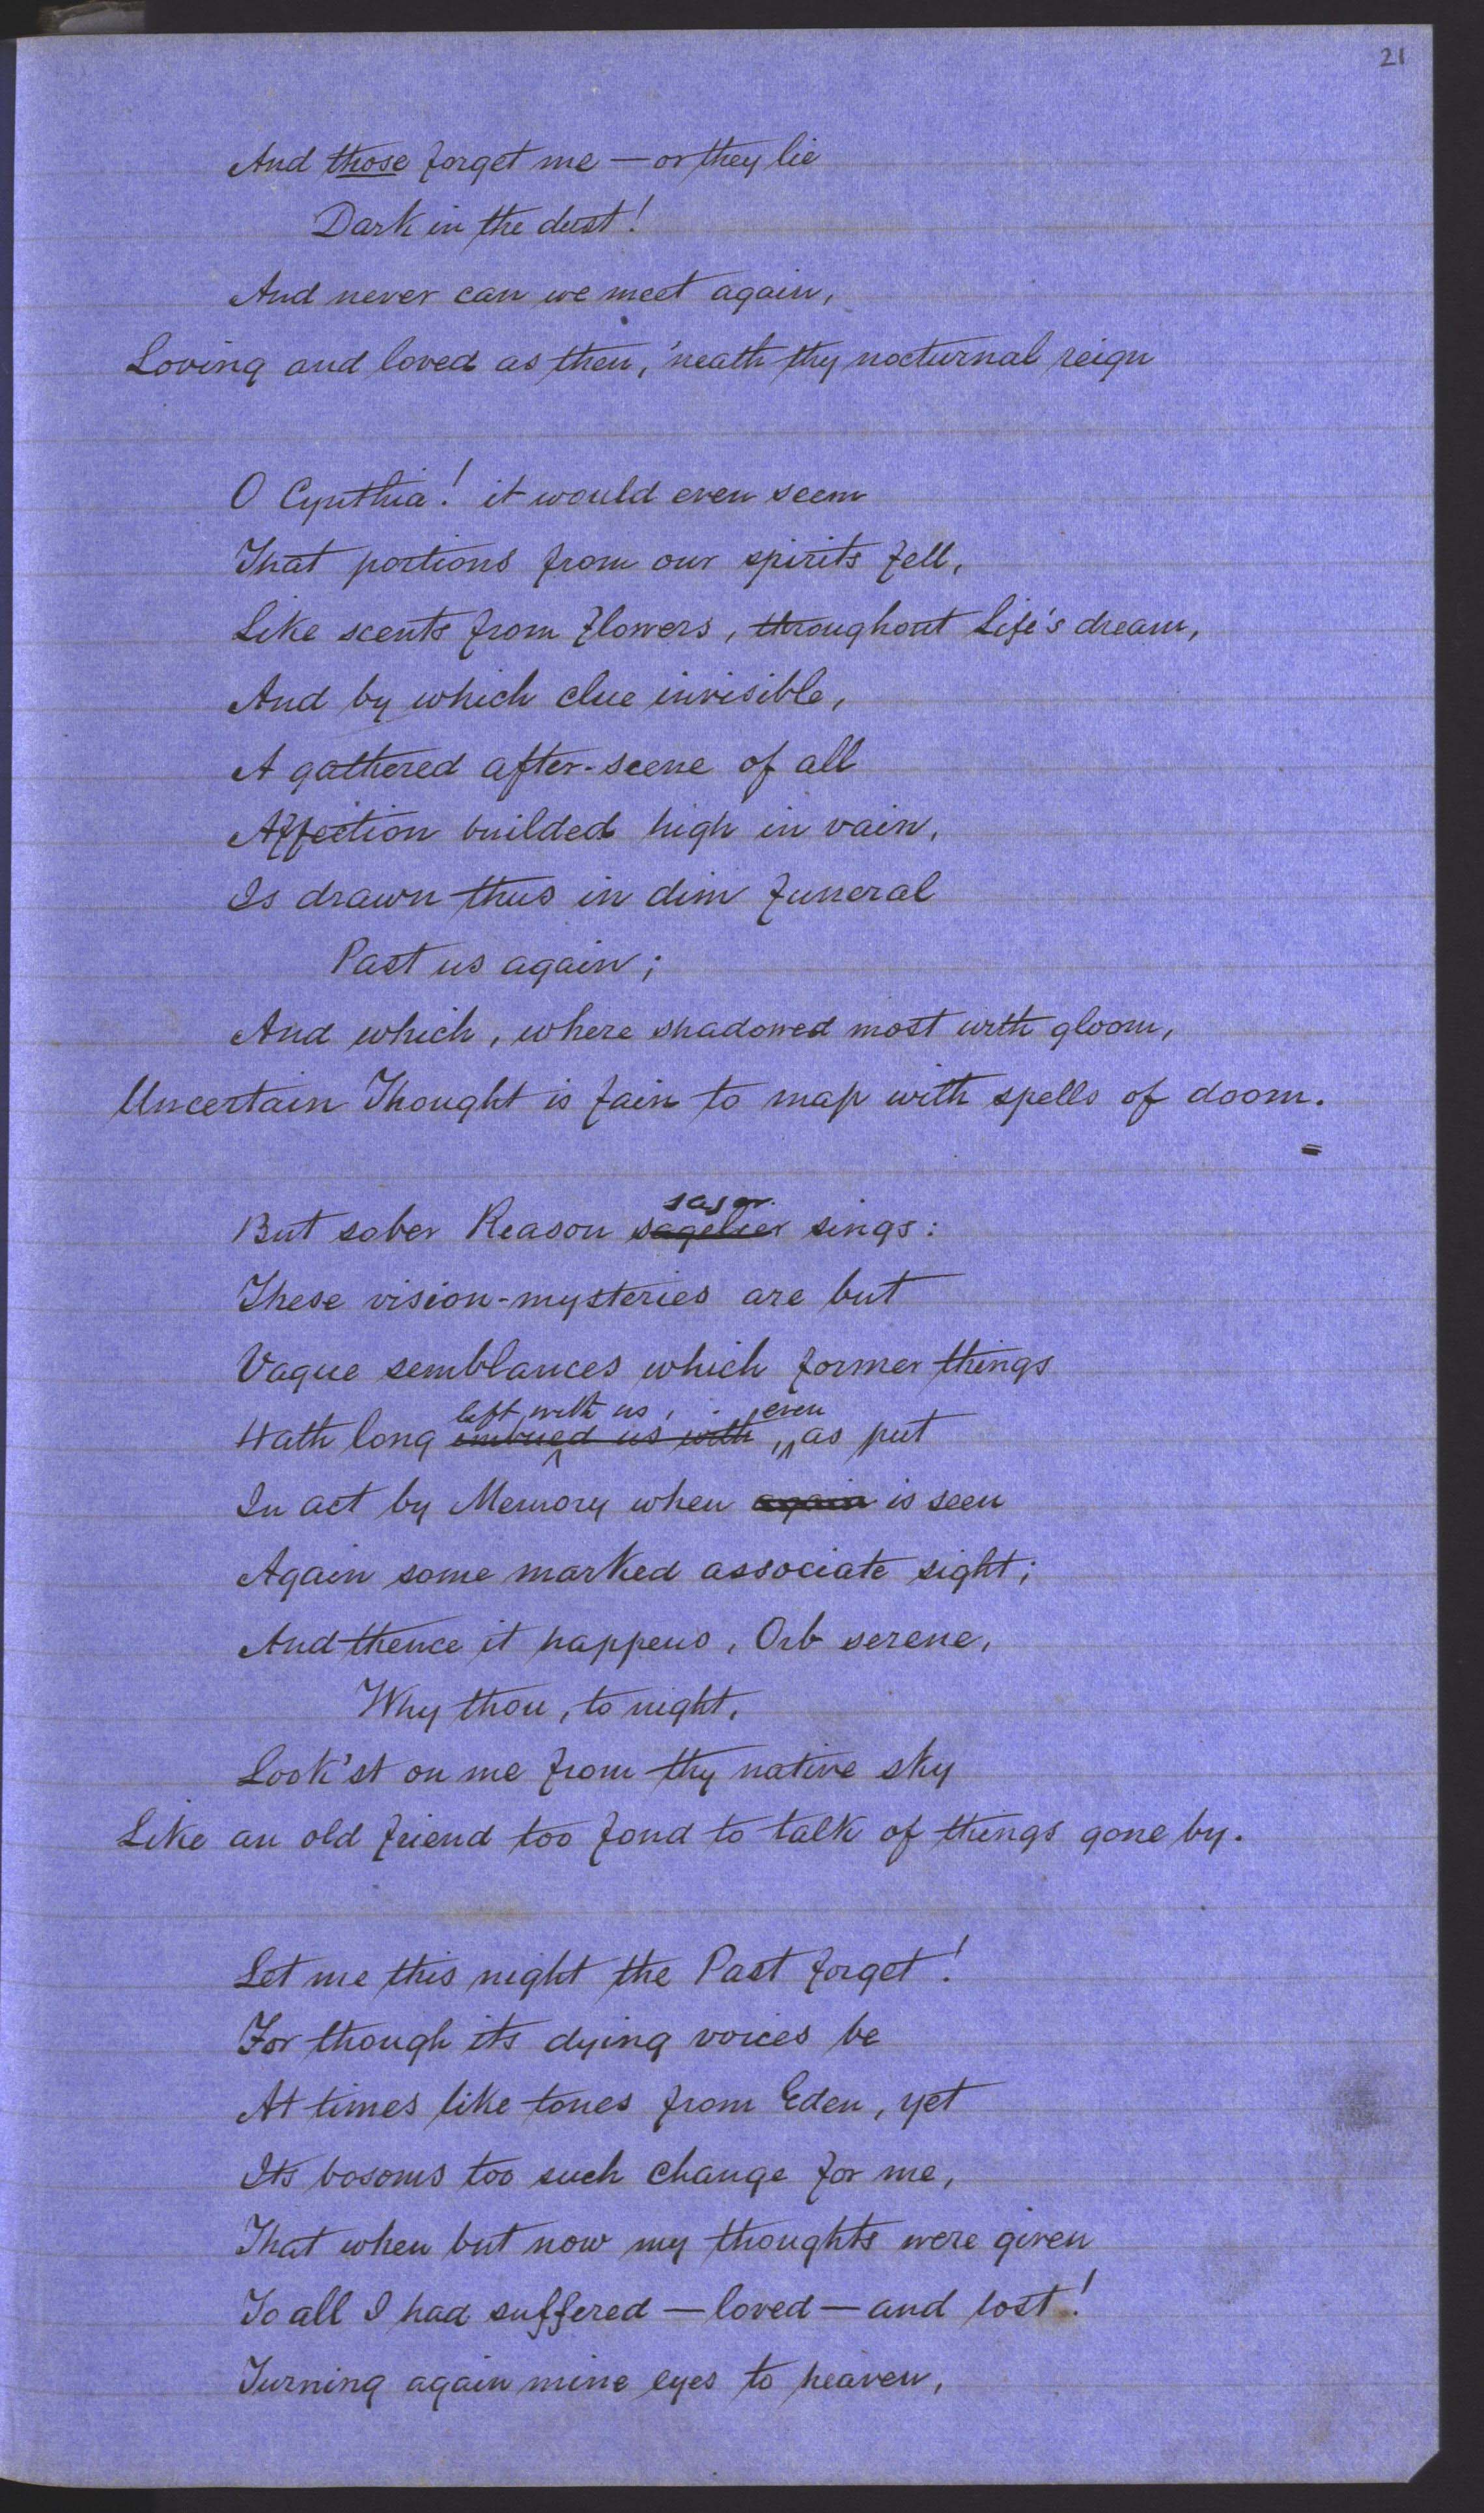 21
And those forget me — or they lie
Dark in the dust!
And never can we meet again,
Loving and loved as then, 'neath thy nocturnal reign
O Cynthia! it would even seem
That portions from our spirits fell,
Like scents from flowers, throughout Life's dream,
And by which clue invisible,
A gathered after-scene of all
Affection builded high in vain,
Is drawn thus in dim funeral
Past us again;
And which, where shadowed most with gloom,
Uncertain Thought is fain to map with spells of doom.
sager
But sober Reason sagelier sings:
These vision-mysteries are but
Vague semblances which former things
left with us, even
Hath long embued us with, as put
In act by Memory when again is seen
Again some marked associate sight;
And thence it happens, Orb serene,
Why thou, to night,
Look'st on me from thy native sky
Like an old friend too fond to talk of things gone by.
Let me this night the Past forget!
For though its dying voices be
At times like tones from Eden, yet
Its bosoms too such change for me,
That when but now my thoughts were given
To all I had suffered — loved — and lost!
Turning again mine eyes to heaven,